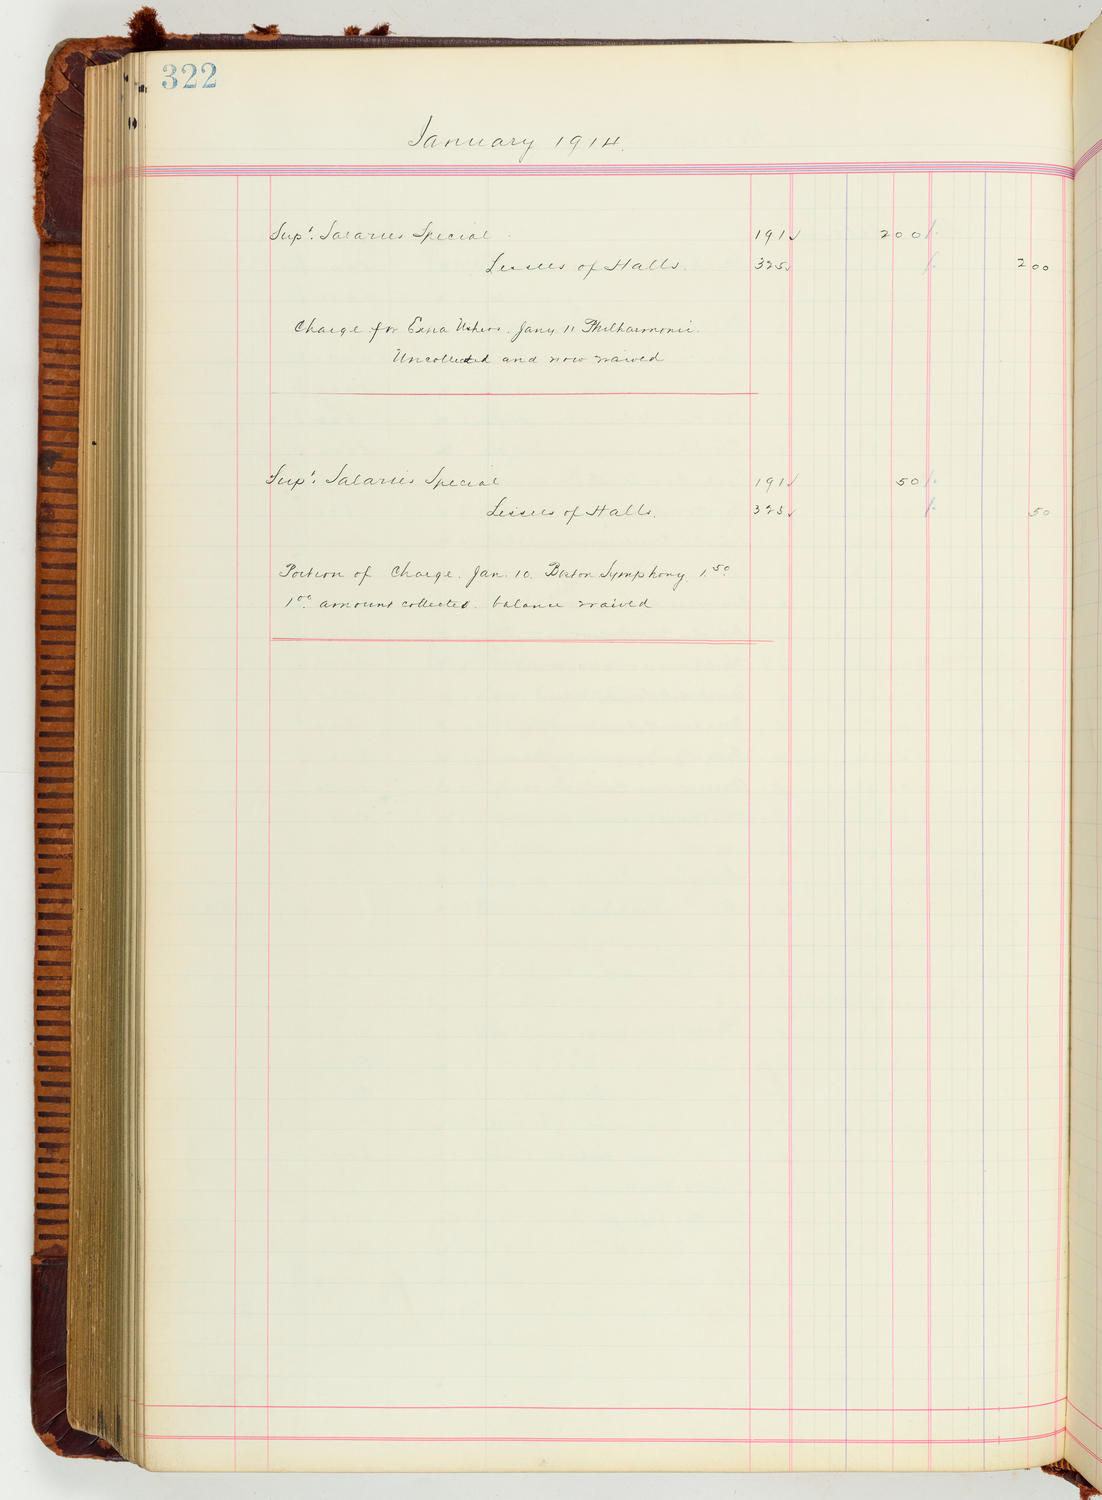 322
January 1914.
Supt. Salaries Special 191 ✓ 200
Lessees of Halls. 325 ✓ 200
Charge for Extra Ushers. Jany 11 Philharmonic.
Uncollected and now waived
Supt. Salaries Special 191 ✓ 50
Lessees of Halls. 325 ✓ 50
Portion of Charge. Jan. 10. Boston Symphony. 1.50
1.00 amount collected. balance waived